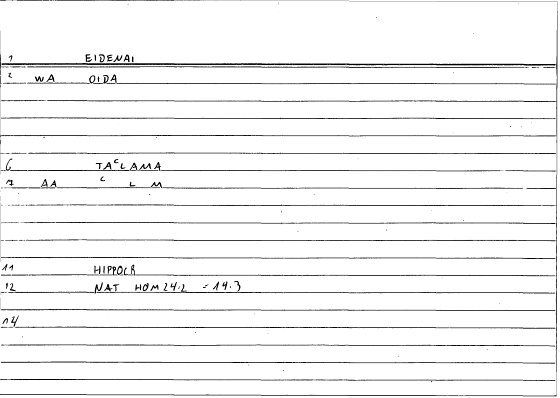 1 EIDENAI
2 WA OIDA
6 TAᶜLAMA
7 AA ᶜ L M
11 HIPPOCR
12 NAT HOM 24.2 = 14.3
14